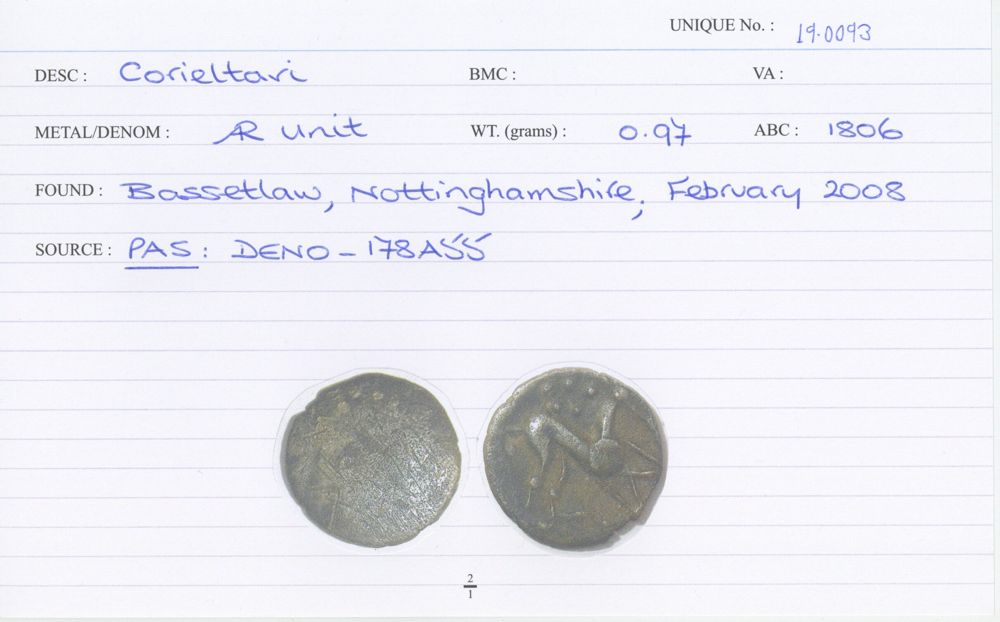 UNIQUE No. : 19.0093
DESC : Corieltavi BMC : VA :
METAL/DENOM : AR unit WT. (grams) : 0.97 ABC : 1806
FOUND : Bassetlaw, Nottinghamshire; February 2008
SOURCE : PAS : DENO - 178A55
2
1